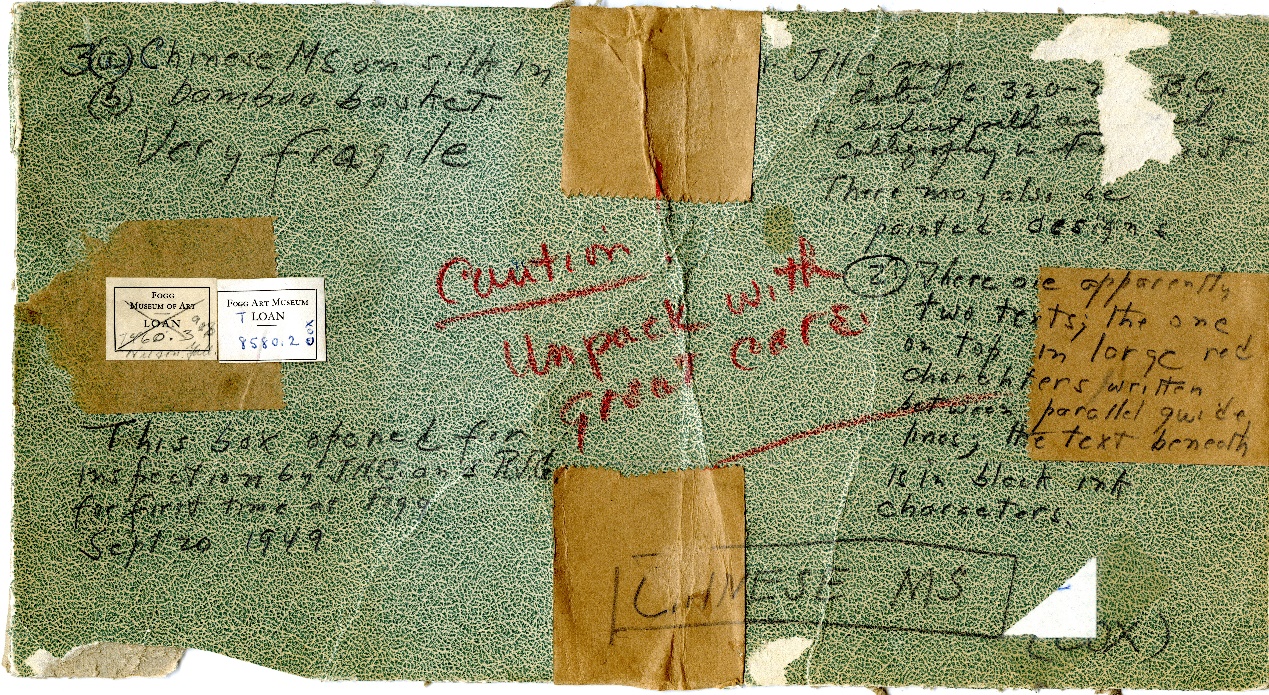 3(a) Chinese MS on silk in
(b) bamboo basket
Very fragile
Caution.
Unpack with
great care
FOGG
MUSEUM OF ART
LOAN
1960.3
FOGG ART MUSEUM
T LOAN
8580.2 COX
This box opened for
inspection by JHC and
for first time at Fogg
Sept 20 1949
JHC
date c 320- B.C.
calligraphy
There may also be
painted designs
(2) There are apparently
two texts; the one
on top in large red
charchters written
between parallel guide
lines; the text beneath
is in black ink
characters.
CHINESE MS
(COX)